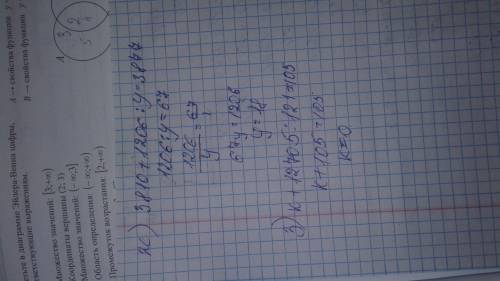 етьте в диаграмме Эйлера-Венна цифры,
тветствующие выражениям.
A → свойства функции y
B → свойства функции y
Множество значений: [3;+∞)
Координаты вершины (2; 3)
Множество значений: (−∞;3]
Множество значений: (−∞;+∞)
Область определения:
Промежуток возрастания: [2;+∞)
A
3 2
5
2с) 3810+1206:y=3877
1206:y=67
1206/y = 67/1
67y=1206
y=18
3) k+12705:121=105
k+105=105
k=0